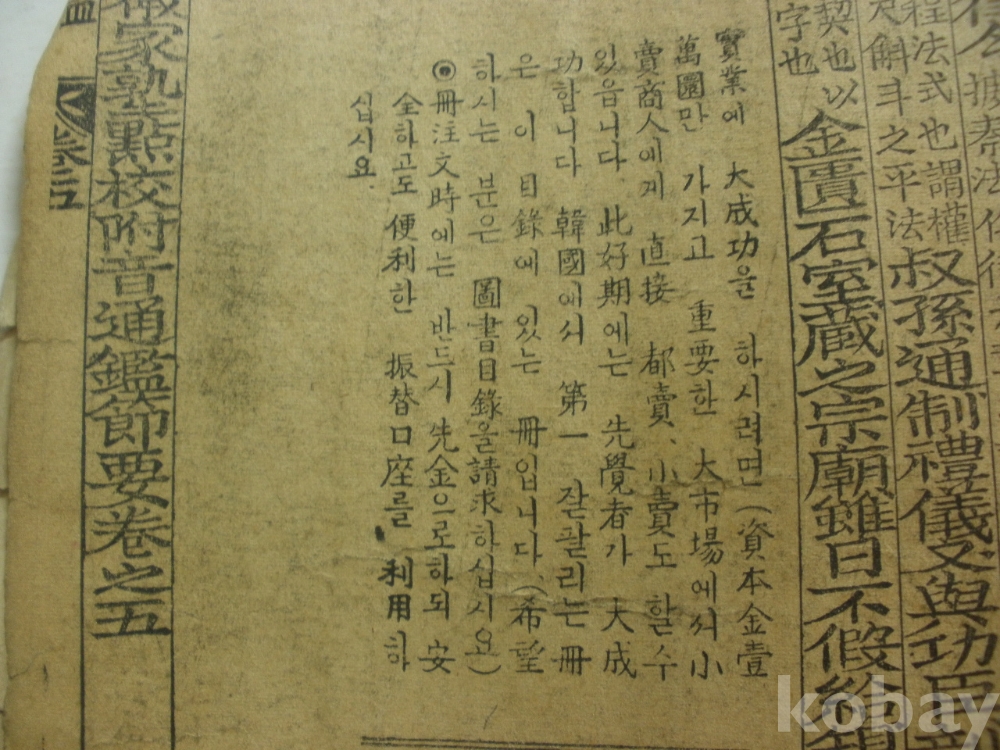 公據秦法作律
程法式也謂權
尺斛斗之平法
叔孫通制禮儀又與功臣
契也
字也
以金匱石室藏之宗廟雖日不假給
實業에 大成功을 하시려면 (資本金壹
萬圜만 가지고 重要한 大市場에서 小
賣商人에게 直接 都賣、小賣도 할수
있읍니다. 此好期에는 先覺者가 大成
功합니다 韓國에서 第一 잘팔리는 冊
은 이 目錄에 있는 冊입니다.(希望
하시는 분은 圖書目錄을請求하십시요)
◉冊注文時에는 반드시 先金으로하되 安
全하고도 便利한 振替口座를 利用하
십시요.
家塾點校附音通鑑節要卷之五
卷之五
kobay